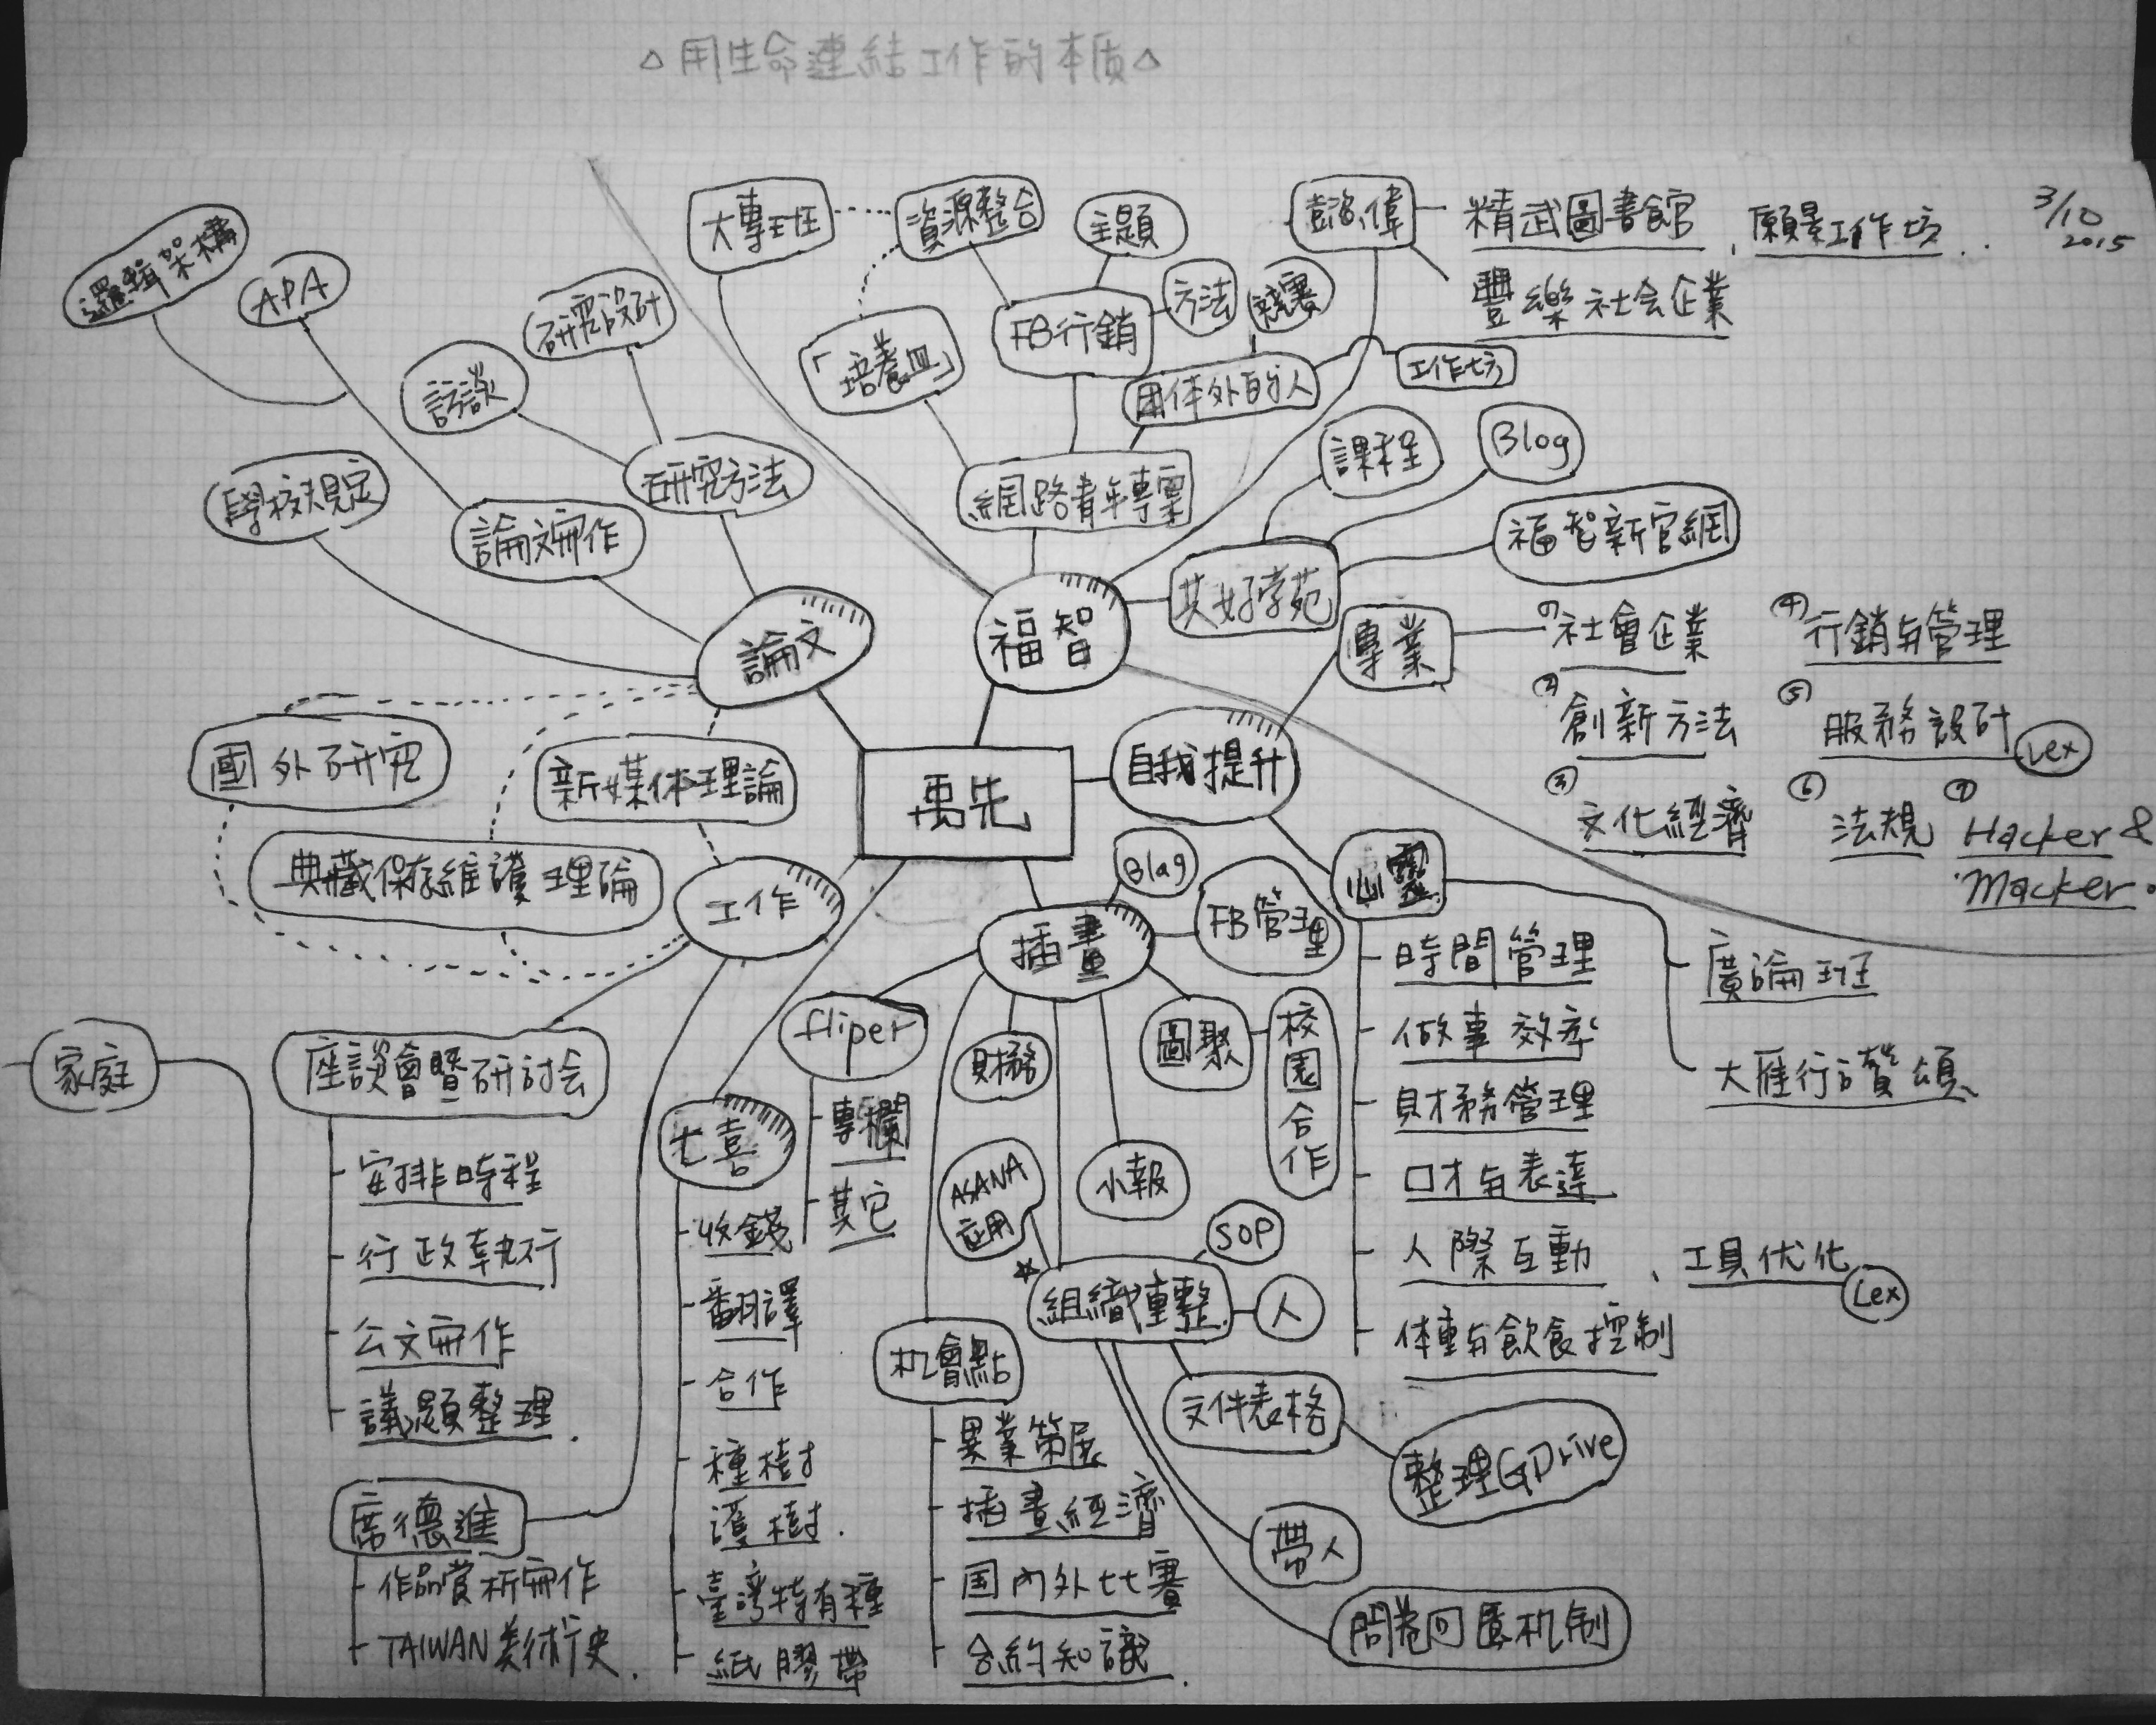 △用生命連結工作的本质△
3/10
2015
邏輯架構
APA
訪談
研究設計
學校規定
論文寫作
研究方法
論文
大專班
資源整合
主題
「培養皿」
FB行銷
方法
競賽
团体外的人
工作坊
網路青年專案
精武圖書館、願景工作坊.
豐樂社会企業
課程
Blog
福智新官網
共好学苑
福智
專業
①社會企業
②創新方法
③文化經濟
④行銷与管理
⑤服務設計
Lex
⑥法規
⑦Hacker &
Macker.
國外研究
新媒体理論
典藏保存維護理論
禹先
自我提升
工作
插畫
Blag
FB管理
心靈
時間管理
做事效率
財務管理
口才与表達
人際互動、工具优化
Lex
体重与飲食控制
廣論班
大雁行讚頌
家庭
座談會暨研討会
安排時程
行政執行
公文寫作
議題整理.
席德進
作品賞析寫作
TAIWAN美術史.
七喜
收錢
翻譯
合作
種樹
護樹.
臺灣特有種
紙膠帶
fliper
專欄
其它
財務
圖聚
校園合作
小報
ASANA
应用
SOP
☆
組織重整
人
机會點
異業策展
插畫經濟
国內外比賽
合約知識.
文件表格
整理GDrive
帶人
問卷回匱机制